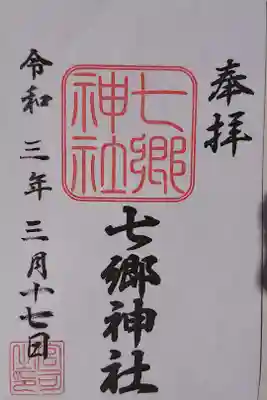 奉拝
七郷神社
七郷神社
令和三年三月十七日